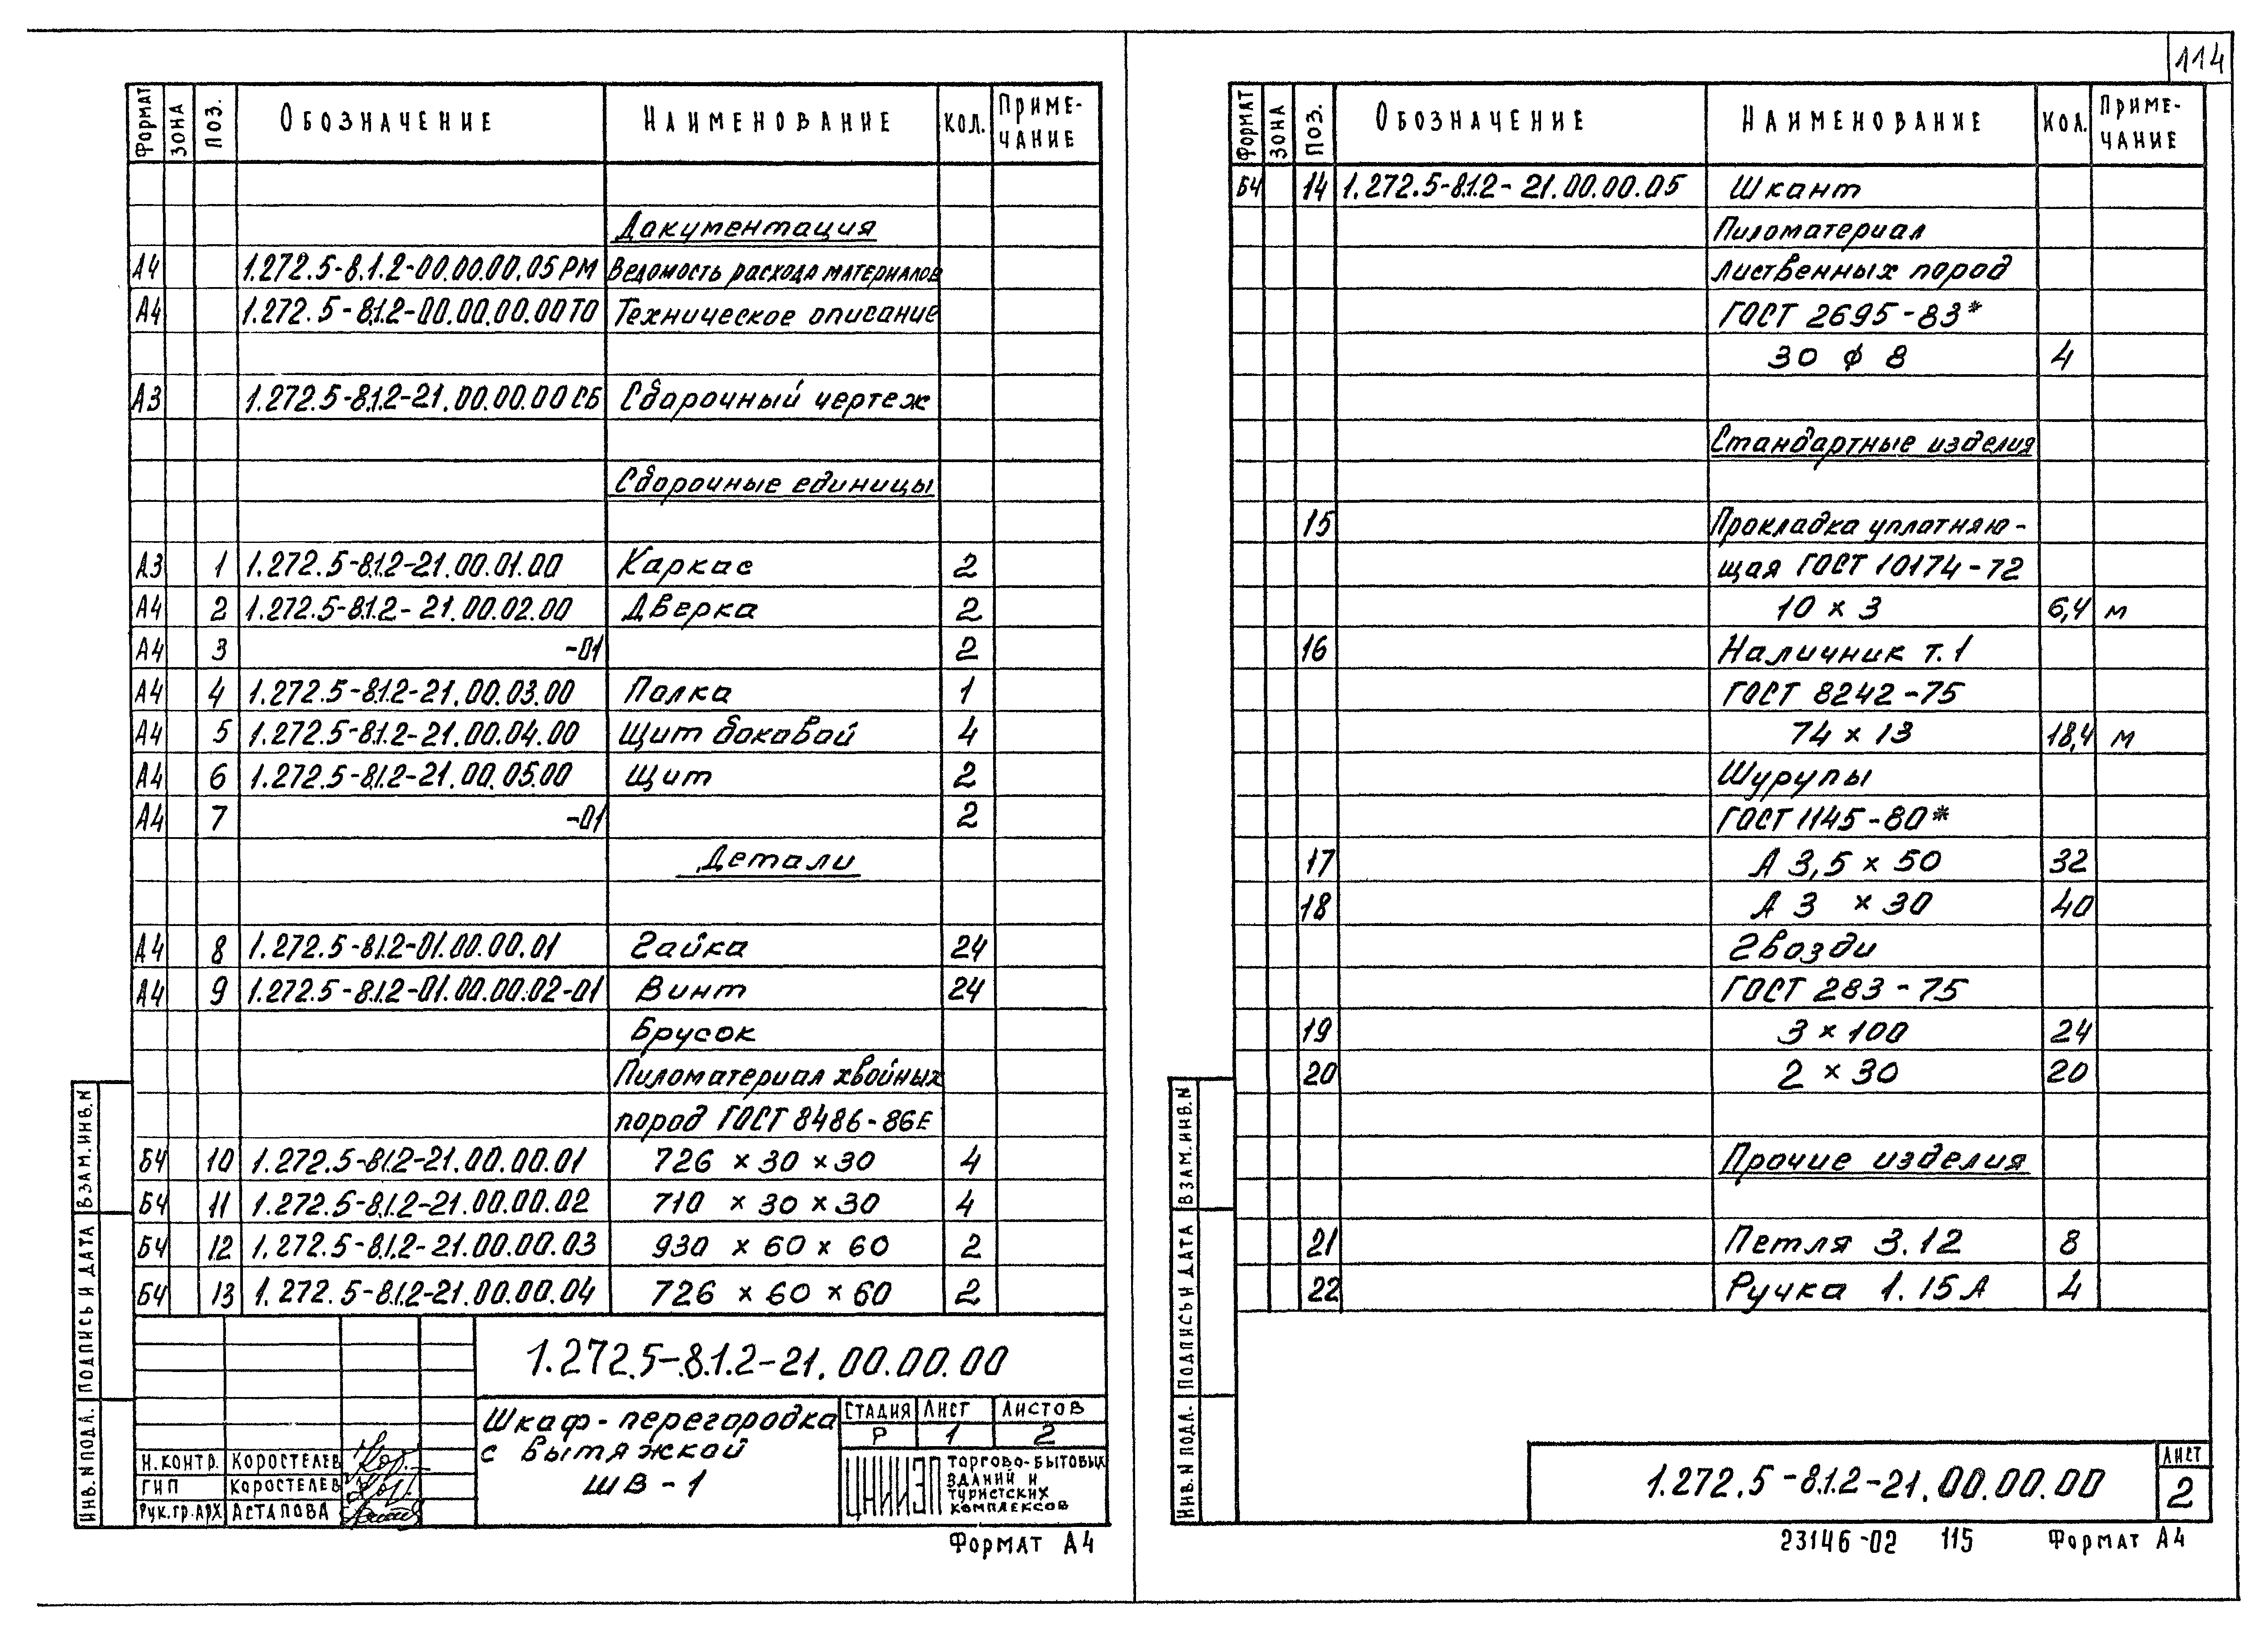 114
Формат Зона Поз. Обозначение Наименование Кол. Приме-
чание
Документация
А4 1.272.5-8.1.2-00.00.00.05РМ Ведомость расхода материалов
А4 1.272.5-8.1.2-00.00.00.00ТО Техническое описание
А3 1.272.5-8.1.2-21.00.00.00СБ Сборочный чертеж
Сборочные единицы
А3 1 1.272.5-8.1.2-21.00.01.00 Каркас 2
А4 2 1.272.5-8.1.2-21.00.02.00 Дверка 2
А4 3 -01 2
А4 4 1.272.5-8.1.2-21.00.03.00 Полка 1
А4 5 1.272.5-8.1.2-21.00.04.00 Щит боковой 4
А4 6 1.272.5-8.1.2-21.00.05.00 Щит 2
А4 7 -01 2
Детали
А4 8 1.272.5-8.1.2-01.00.00.01 Гайка 24
А4 9 1.272.5-8.1.2-01.00.00.02-01 Винт 24
Брусок
Пиломатериал хвойных
пород ГОСТ 8486-86Е
Б4 10 1.272.5-8.1.2-21.00.00.01 726 × 30 × 30 4
Б4 11 1.272.5-8.1.2-21.00.00.02 710 × 30 × 30 4
Б4 12 1.272.5-8.1.2-21.00.00.03 930 × 60 × 60 2
Б4 13 1.272.5-8.1.2-21.00.00.04 726 × 60 × 60 2
Взам.инв.N
Подпись и дата
Инв.N подл.
1.272.5-8.1.2-21.00.00.00
Шкаф-перегородка
с вытяжкой
ШВ-1
Стадия Лист Листов
Р 1 2
Н.контр. Коростелев
ГИП Коростелев
Рук.гр.арх Астапова
ЦНИИЭП
торгово-бытовых
зданий и
туристских
комплексов
Формат А4
Формат Зона Поз. Обозначение Наименование Кол. Приме-
чание
Б4 14 1.272.5-8.1.2-21.00.00.05 Шкант
Пиломатериал
лиственных пород
ГОСТ 2695-83*
30 ϕ 8 4
Стандартные изделия
15 Прокладка уплотняю-
щая ГОСТ 10174-72
10 × 3 6,4 м
16 Наличник т.1
ГОСТ 8242-75
74 × 13 18,4 м
Шурупы
ГОСТ 1145-80*
17 А 3,5 × 50 32
18 А 3 × 30 40
Гвозди
ГОСТ 283-75
19 3 × 100 24
20 2 × 30 20
Прочие изделия
21 Петля 3.12 8
22 Ручка 1.15А 4
Взам.инв.N
Подпись и дата
Инв.N подл.
1.272.5-8.1.2-21.00.00.00
Лист
2
23146-02 115 Формат А4